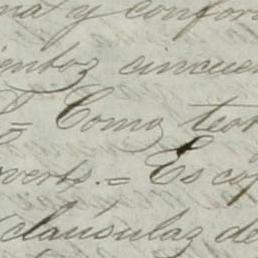 ma y confor
ientos cincuen
= Como test
vert. = Es cop
clausulas de